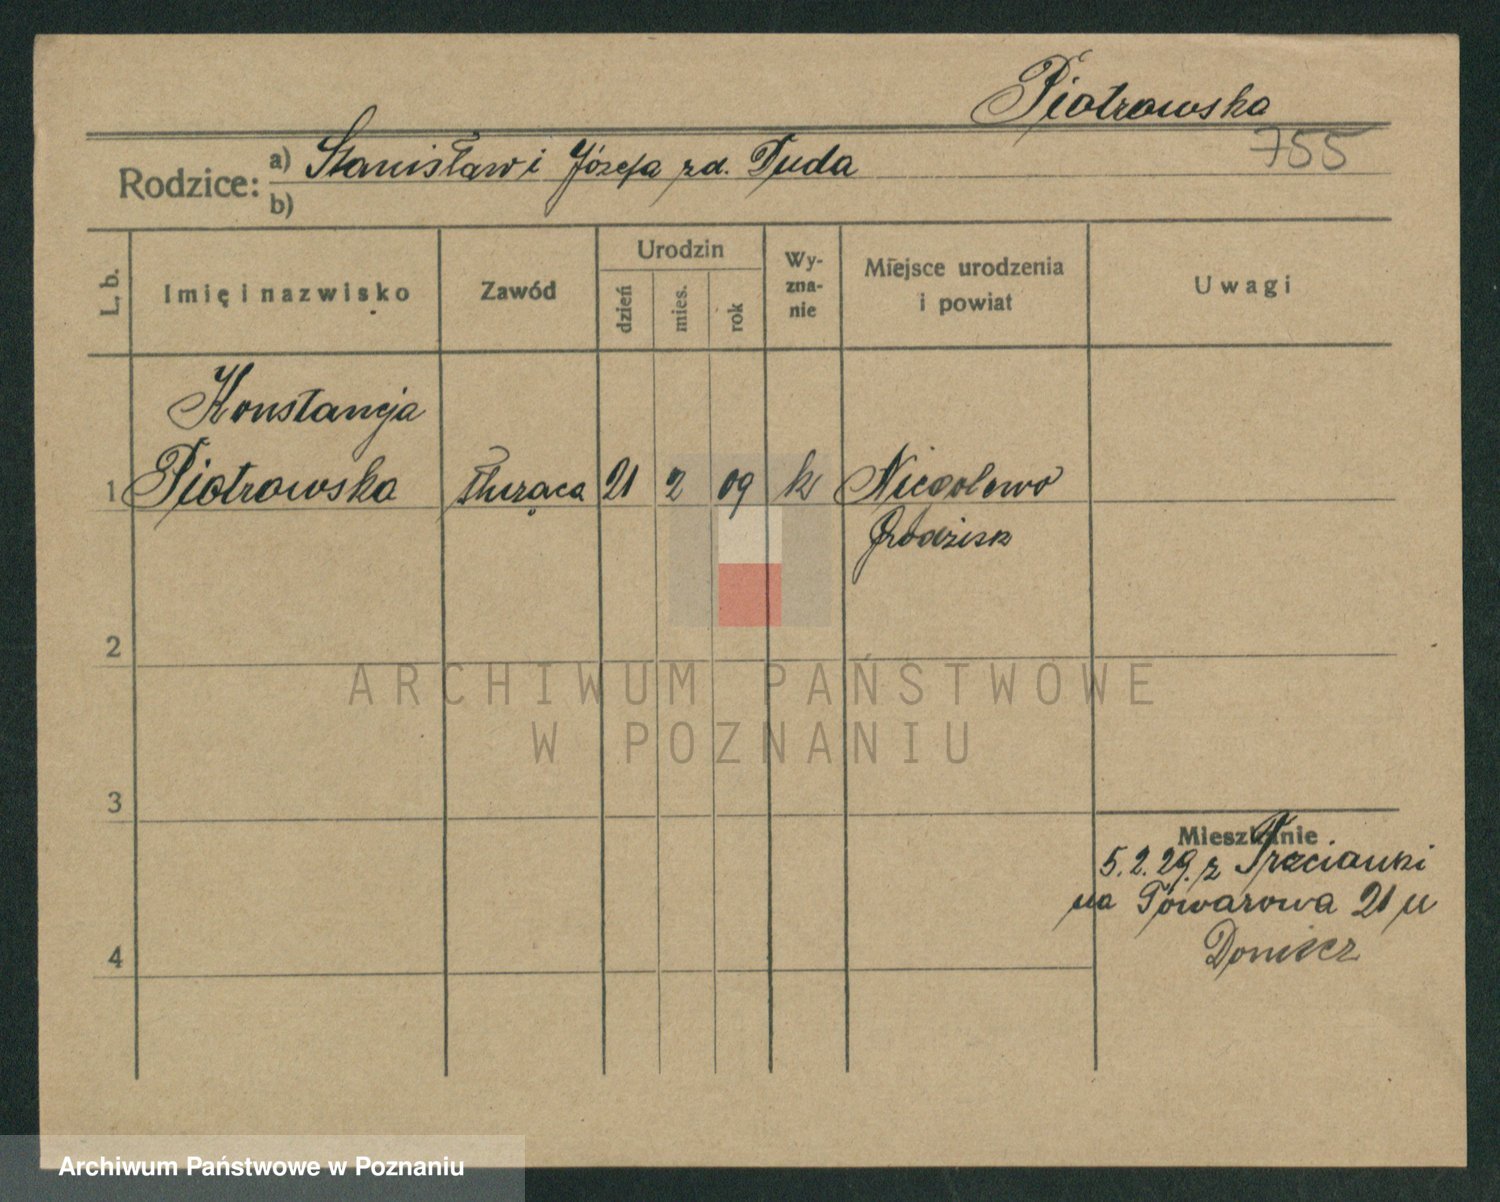 Piotrowska
755
Rodzice: a) Stanisław i Józefa zd. Duda
b)
L. b.
Imię i nazwisko
Zawód
Urodzin
dzień
mies.
rok
Wy-
zna-
nie
Miejsce urodzenia
i powiat
Uwagi
Konstancja
1 Piotrowska służąca 21 2 09 k Niegolewo
Grodzisk
2
ARCHIWUM PAŃSTWOWE
W POZNANIU
3
Mieszkanie
5.2.29. z Trzcianki
na Towarowa 21 u
4
Archiwum Państwowe w Poznaniu